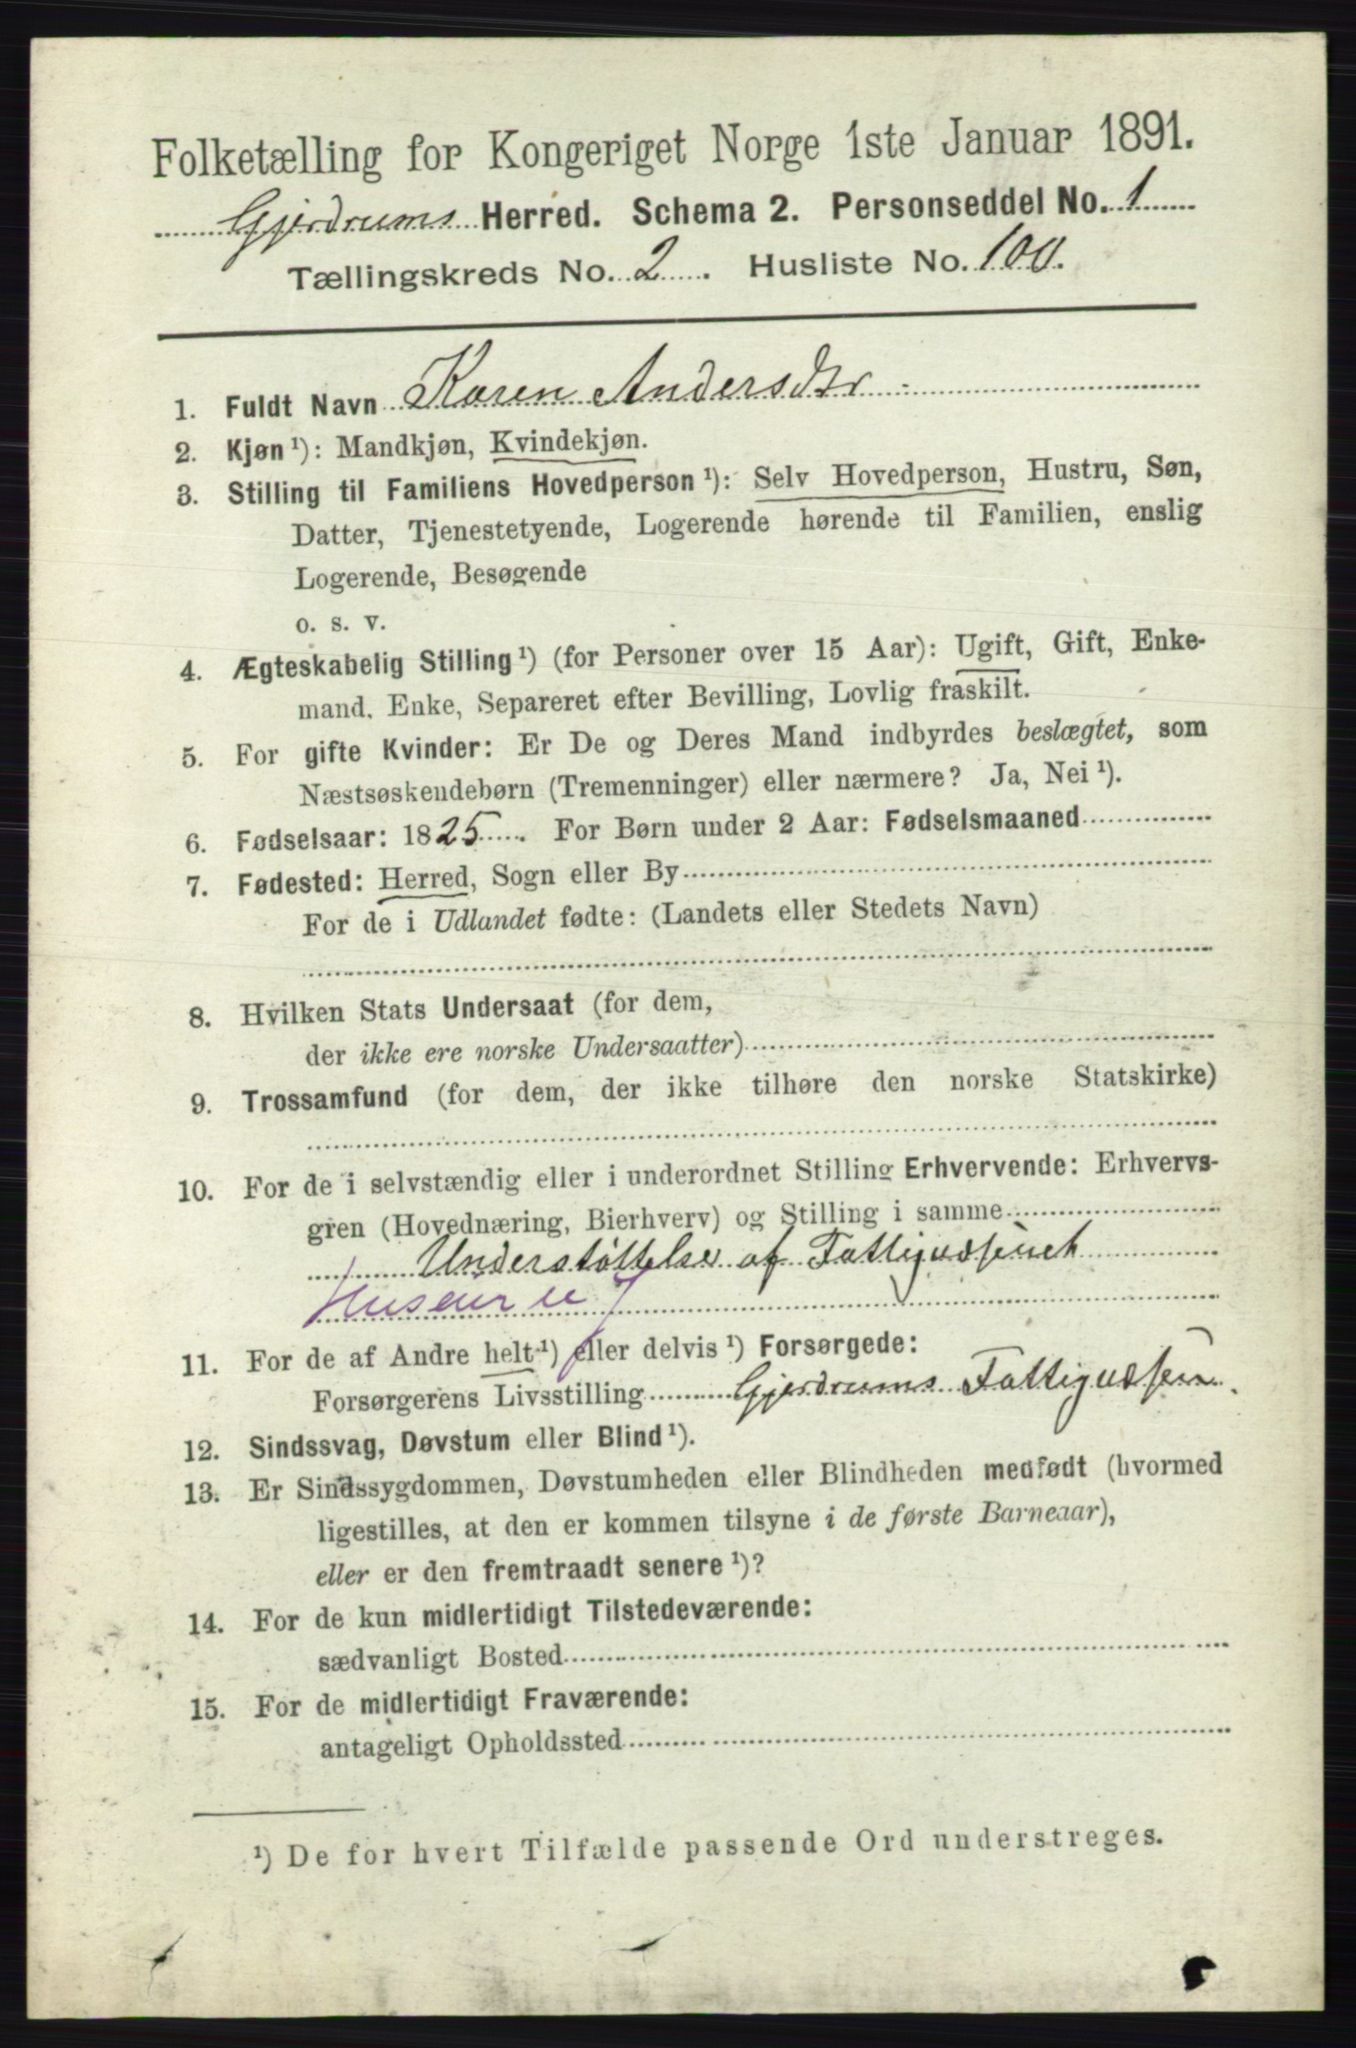 Folketælling for Kongeriget Norge 1ste Januar 1891.
Gjerdrums Herred. Schema 2. Personseddel No. 1
Tællingskreds No. 2. Husliste No. 100.
1. Fuldt Navn Karen Andersdtr
2. Kjøn ¹): Mandkjøn, Kvindekjøn.
3. Stilling til Familiens Hovedperson ¹): Selv Hovedperson, Hustru, Søn,
Datter, Tjenestetyende, Logerende hørende til Familien, enslig
Logerende, Besøgende
o. s. v.
4. Ægteskabelig Stilling ¹) (for Personer over 15 Aar): Ugift, Gift, Enke-
mand, Enke, Separeret efter Bevilling, Lovlig fraskilt.
5. For gifte Kvinder: Er De og Deres Mand indbyrdes beslægtet, som
Næstsøskendebørn (Tremenninger) eller nærmere? Ja, Nei ¹).
6. Fødselsaar: 1825. For Børn under 2 Aar: Fødselsmaaned
7. Fødested: Herred, Sogn eller By
For de i Udlandet fødte: (Landets eller Stedets Navn)
8. Hvilken Stats Undersaat (for dem,
der ikke ere norske Undersaatter)
9. Trossamfund (for dem, der ikke tilhøre den norske Statskirke)
10. For de i selvstændig eller i underordnet Stilling Erhvervende: Erhvervs-
gren (Hovednæring, Bierhverv) og Stilling i samme
Understøttelse af Fattigvæsenet
11. For de af Andre helt ¹) eller delvis ¹) Forsørgede:
Forsørgerens Livsstilling Gjerdrums Fattigvæsen
12. Sindssvag, Døvstum eller Blind ¹).
13. Er Sindssygdommen, Døvstumheden eller Blindheden medfødt (hvormed
ligestilles, at den er kommen tilsyne i de første Barneaar),
eller er den fremtraadt senere ¹)?
14. For de kun midlertidigt Tilstedeværende:
sædvanligt Bosted
15. For de midlertidigt Fraværende:
antageligt Opholdssted
¹) De for hvert Tilfælde passende Ord understreges.